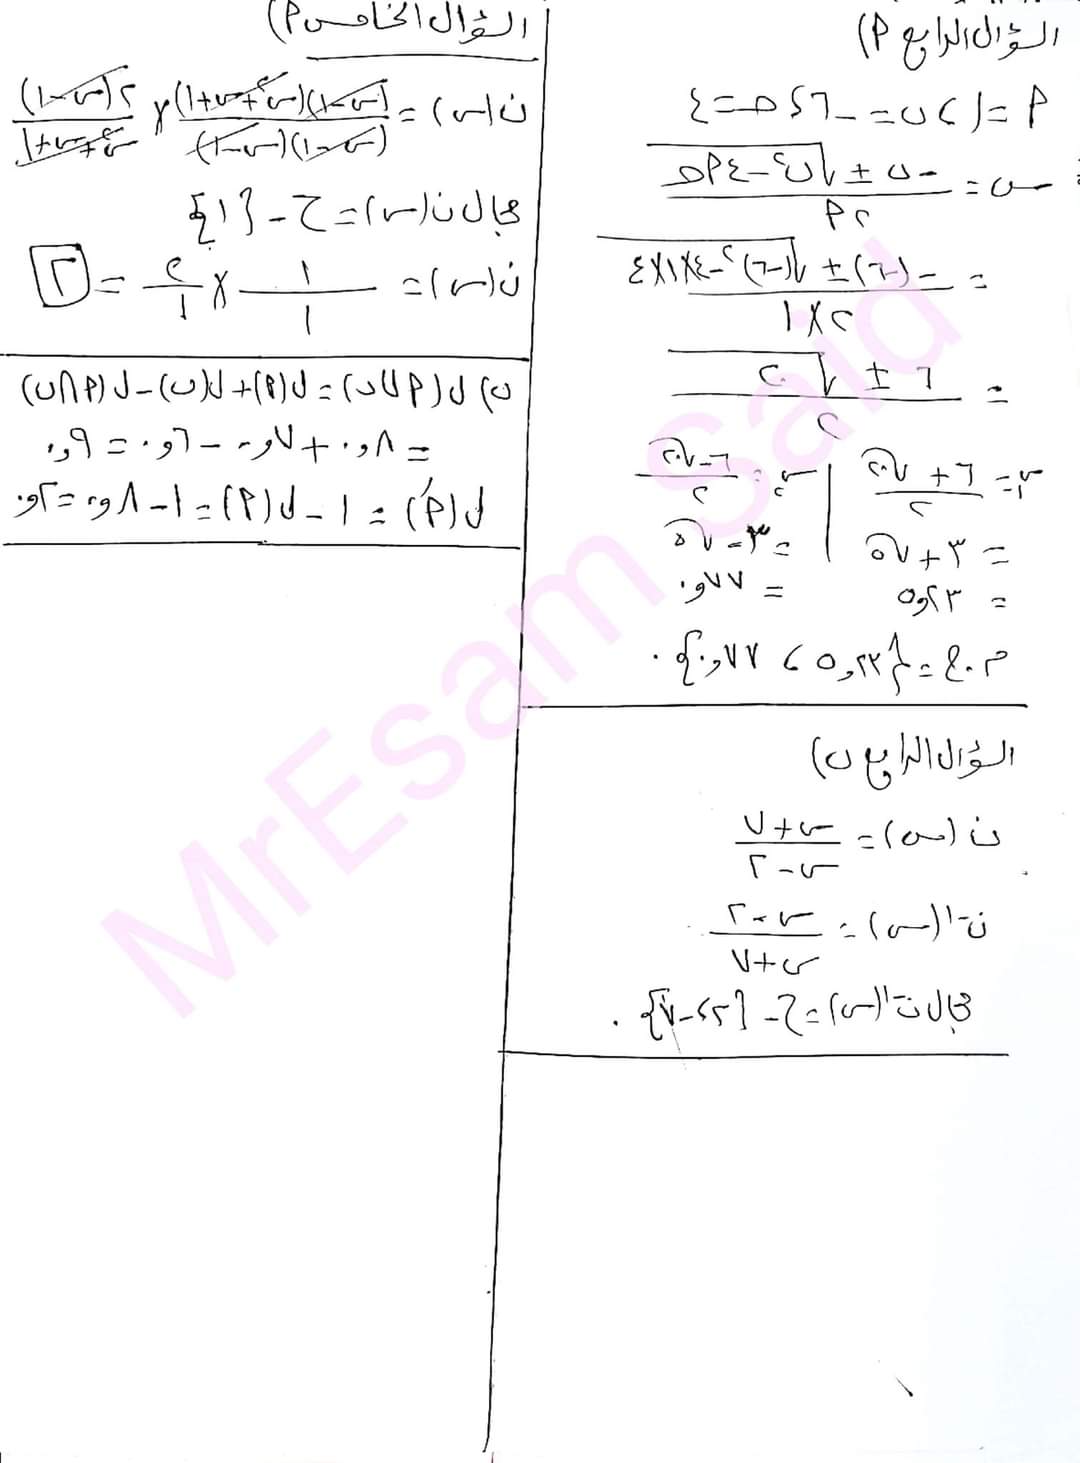 السؤال الرابع (P
P = ١ ، ب = -٦ ، حـ = ٤
س = (-ب ± √(ب² - ٤Pحـ)) / ٢P
= (-(-٦) ± √((-٦)² - ٤×١×٤)) / ٢×١
= (٦ ± √٢٠) / ٢
س١ = (٦ + √٢٠) / ٢ | س٢ = (٦ - √٢٠) / ٢
= ٣ + √٥ | = ٣ - √٥
= ٥,٢٣ | = ٠,٧٧
م.ح = {٥,٢٢ ، ٠,٧٧} .
السؤال الرابع ب)
ن(س) = (س + ٧) / (س - ٢)
ن⁻¹(س) = (س - ٢) / (س + ٧)
مجال ن⁻¹(س) = ح - {٢ ، -٧} .
السؤال الخامس (P
ن(س) = (س-١)(س²+س+١) / (س-١)(س-١) × ٢(س-١) / س²+س+١
مجال ن(س) = ح - {١}
ن(س) = ١/١ × ٢/١ = ٢
ب) ل(P∪ب) = ل(P) + ل(ب) - ل(P∩ب)
= ٠,٨ + ٠,٧ - ٠,٦ = ٠,٩
ل(Ṕ) = ١ - ل(P) = ١ - ٠,٨ = ٠,٢
MrEsam Said